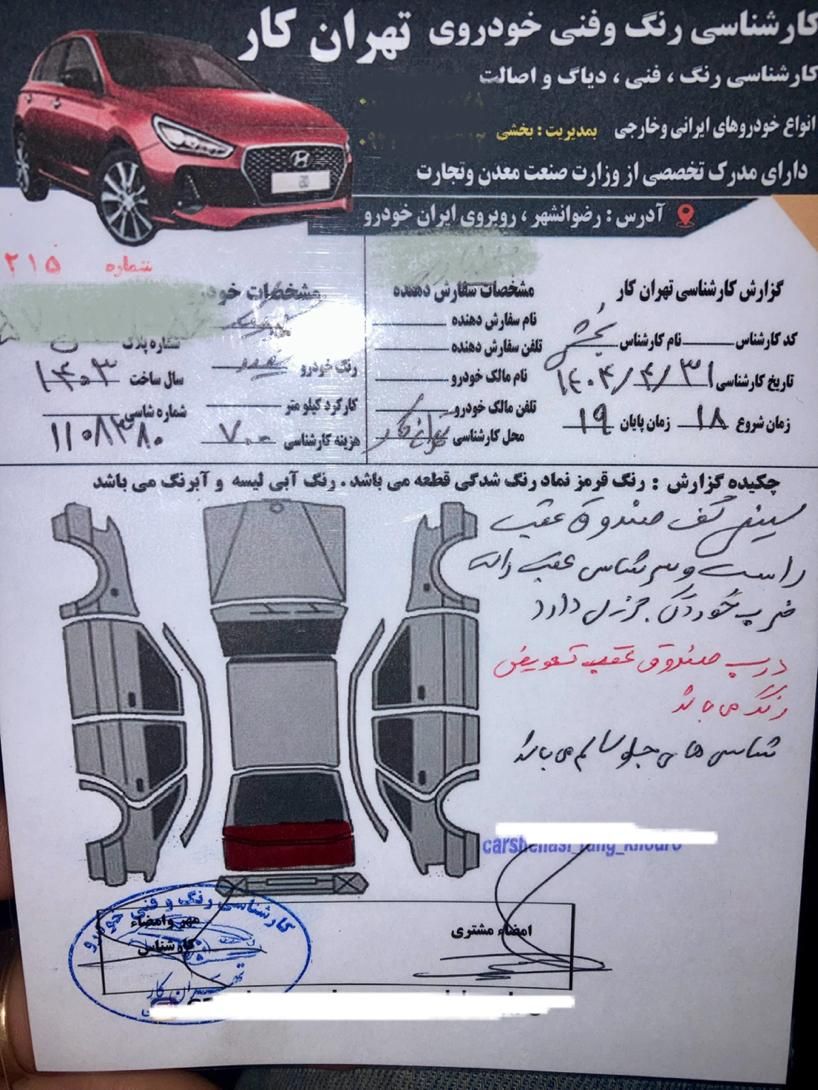 کارشناسی رنگ وفنی خودروی تهران کار
کارشناسی رنگ ، فنی ، دیاگ و اصالت
انواع خودروهای ایرانی وخارجی بمدیریت : بخشی
دارای مدرک تخصصی از وزارت صنعت معدن وتجارت
آدرس : رضوانشهر ، روبروی ایران خودرو
شماره ۲۱۵
گزارش کارشناسی تهران کار
کد کارشناس نام کارشناس بخشی
تاریخ کارشناسی ۱۴۰۴/۴/۳۱
زمان شروع ۱۸ زمان پایان ۱۹
مشخصات سفارش دهنده
نام سفارش دهنده
تلفن سفارش دهنده
نام مالک خودرو
تلفن مالک خودرو
محل کارشناسی تهران کار
مشخصات خودرو
شماره پلاک
رنگ خودرو سال ساخت ۱۴۰۳
کارکرد کیلو متر شماره شاسی
هزینه کارشناسی ۷۰۰ ۱۱۰۸۳۸۰
چکیده گزارش : رنگ قرمز نماد رنگ شدگی قطعه می باشد . رنگ آبی لیسه و آبرنگ می باشد
سینی کف صندوق عقب
راست و سرشاسی عقب راست
ضرب خوردگی جزئی دارد
درب صندوق عقب تعویض
رنگ می باشد
شاسی های جلو سالم می باشد
carshenasi_rang_khodro
امضاء مشتری
مهر وامضاء
کارشناس
کارشناسی رنگ و فنی خودرو
تهران کار